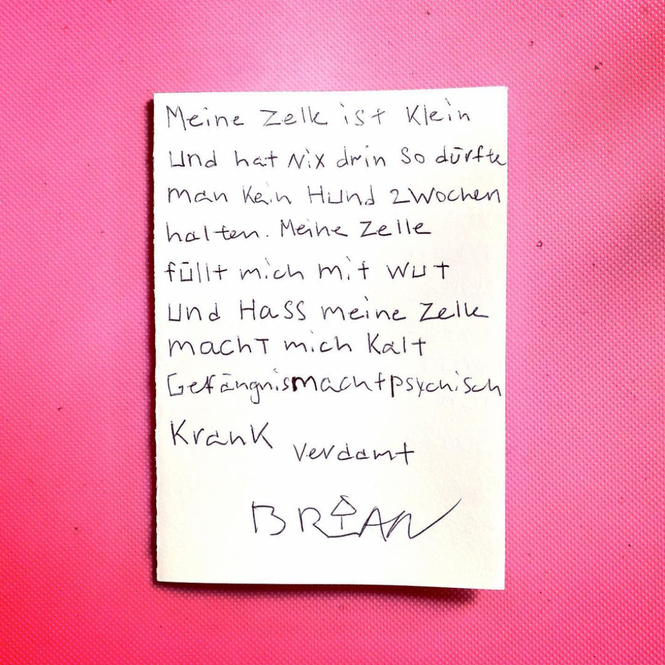 Meine Zelle ist Klein
und hat nix drin so dürfte
man kein Hund 2 Wochen
halten. Meine Zelle
füllt mich mit Wut
und Hass meine Zelle
macht mich Kalt
Gefängnis macht psychisch
Krank verdamt
BRIAN